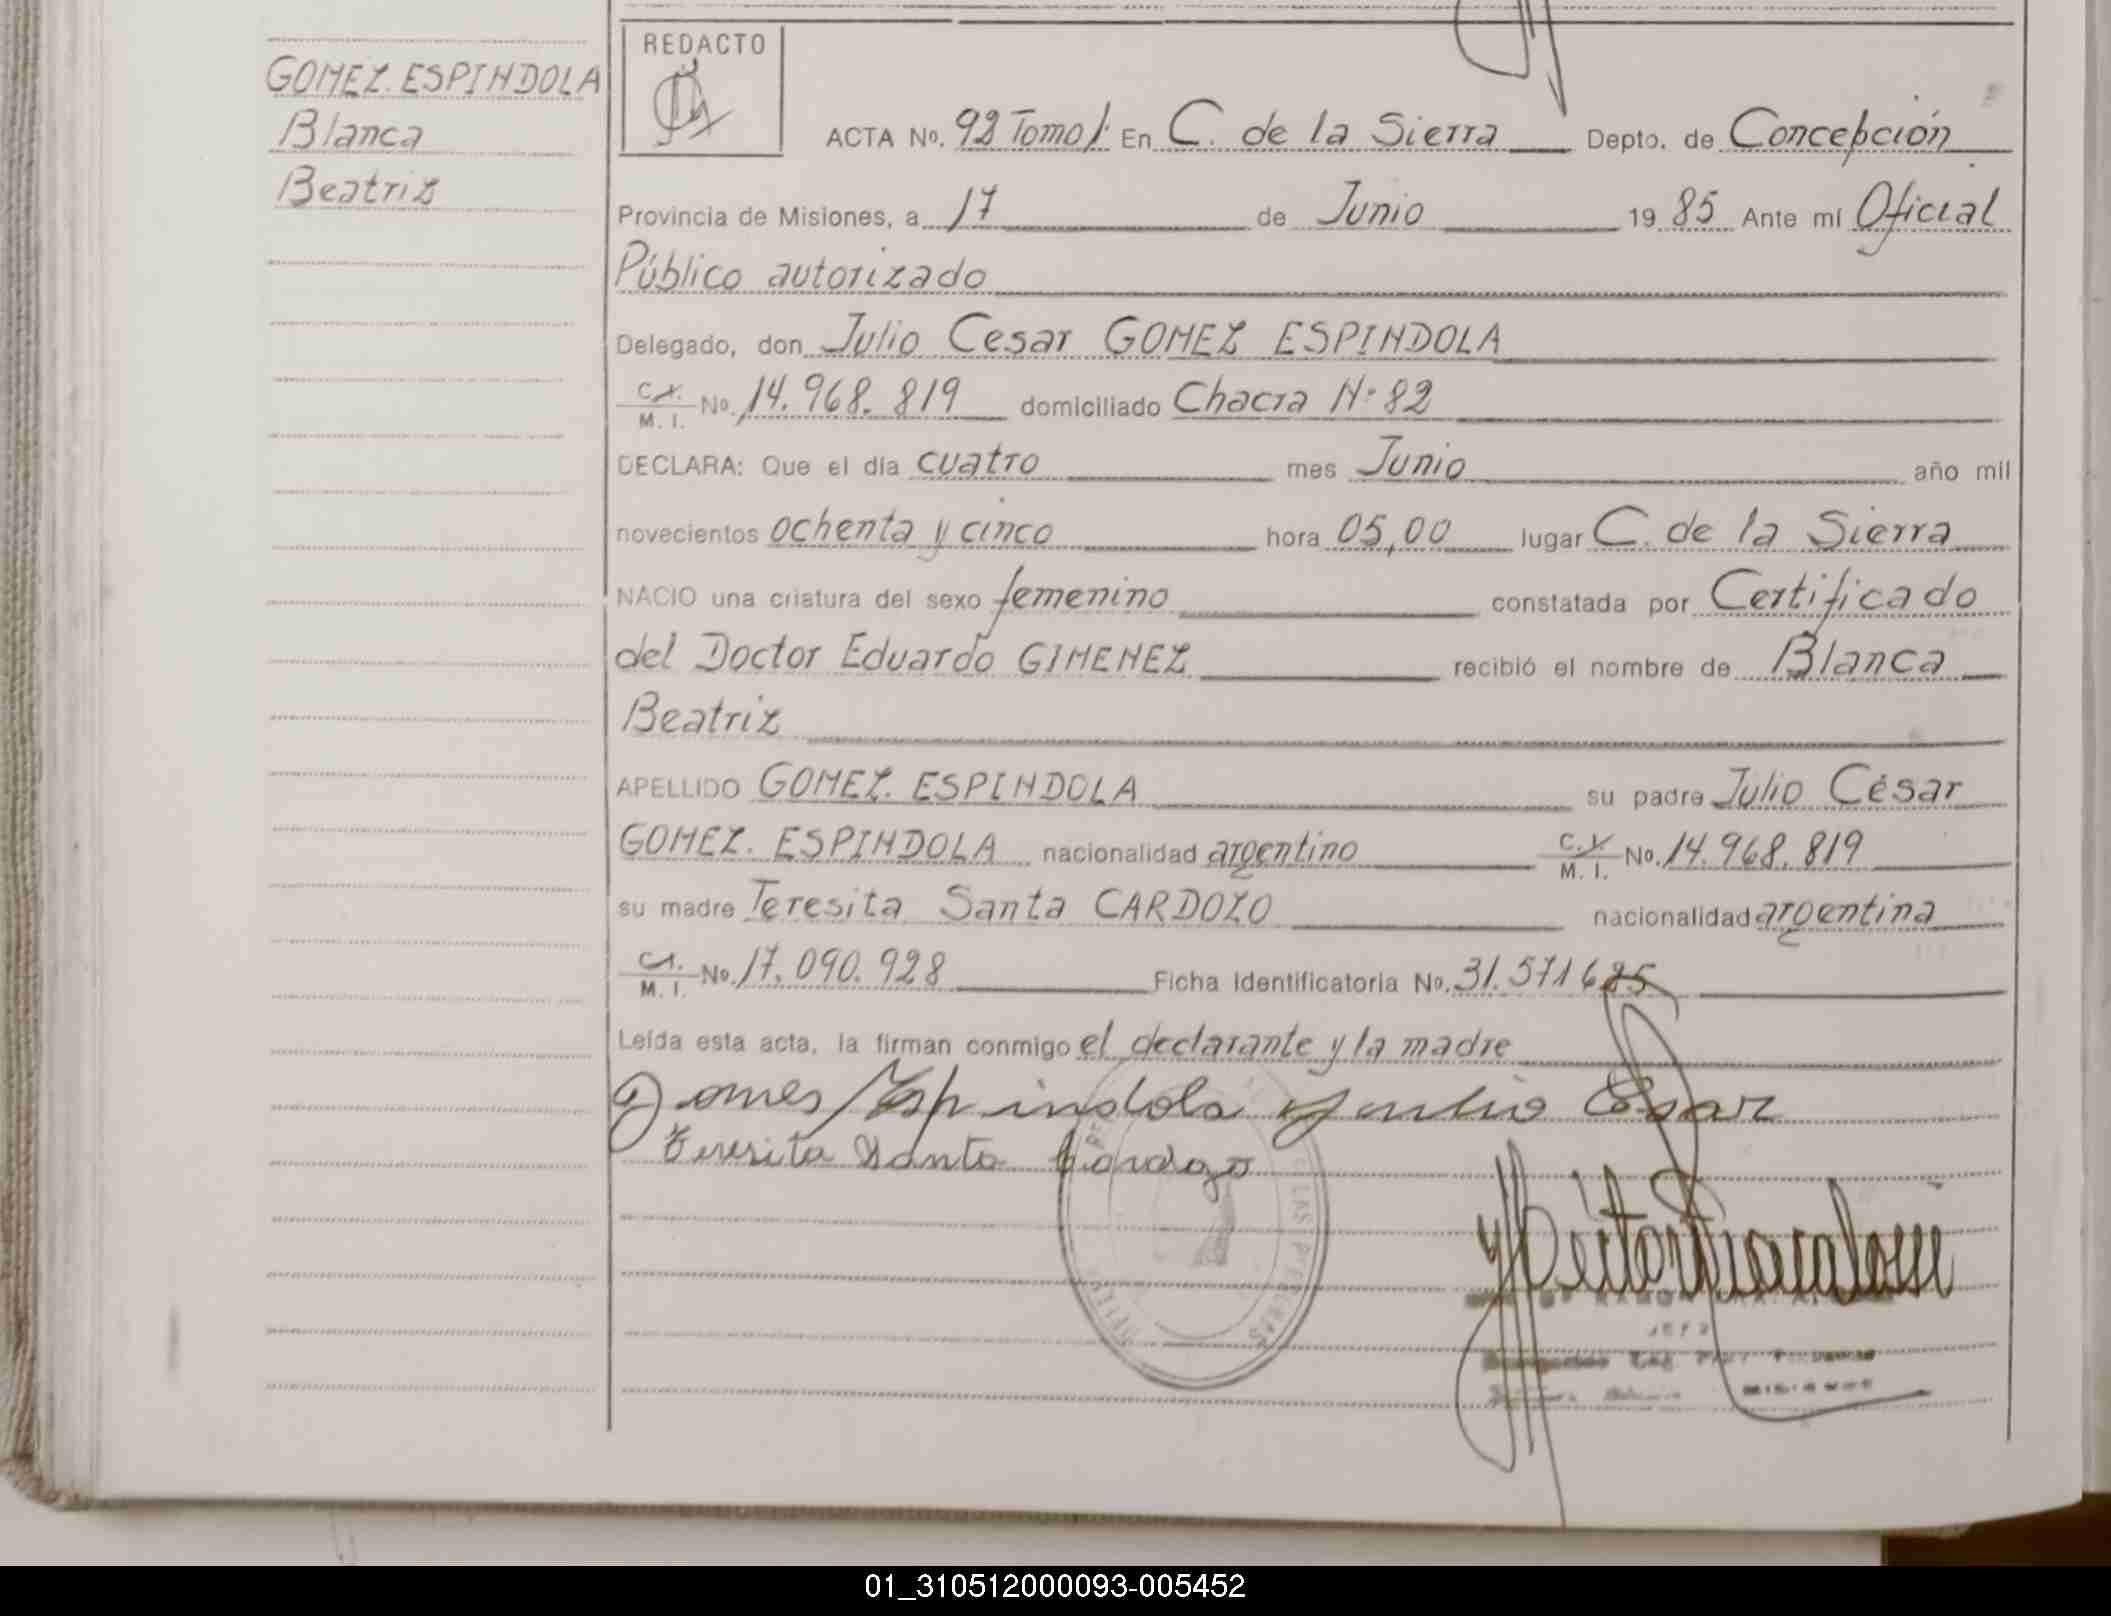 GOMEZ. ESPINDOLA
Blanca
Beatriz
REDACTO
ACTA No. 92 Tomo 1. En C. de la Sierra Depto. de Concepción
Provincia de Misiones, a 17 de Junio 19 85 Ante mí Oficial
Público autorizado
Delegado, don Julio Cesar GOMEZ ESPINDOLA
C.I. M. I. No. 14.968.819 domiciliado Chacra N° 82
DECLARA: Que el día cuatro mes Junio año mil
novecientos ochenta y cinco hora 05,00 lugar C. de la Sierra
NACIO una criatura del sexo femenino constatada por Certificado
del Doctor Eduardo GIMENEZ recibió el nombre de Blanca
Beatriz
APELLIDO GOMEZ. ESPINDOLA su padre Julio César
GOMEZ. ESPINDOLA nacionalidad argentino C.I. M. I. No. 14.968.819
su madre Teresita Santa CARDOZO nacionalidad argentina
C.I. M. I. No. 17.090.928 Ficha Identificatoria No. 31.571685
Leída esta acta, la firman conmigo el declarante y la madre
Gomes Espindola Julio Cesar
Teresita Santa Cardozo
DE LAS PERSONAS
JEFE
MISIONES
01_310512000093-005452